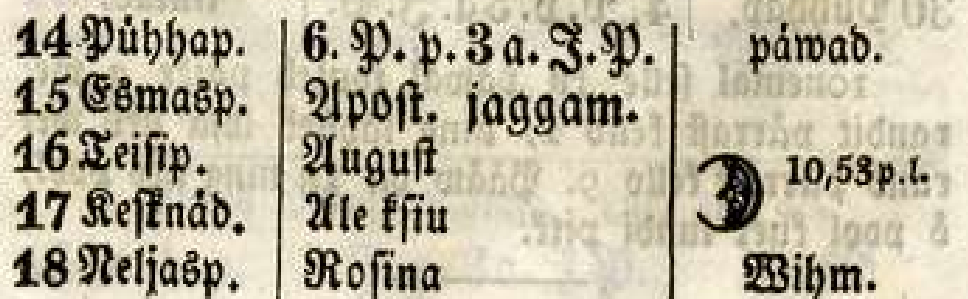 14 Pühhap. 6. P. p. 3 a. J. P. päwad.
15 Esmasp. Apost. jaggam.
16 Teisip. August 10,53 p. l.
17 Kesknäd. Ale ksiu
18 Neljasp. Rosina Wihm.